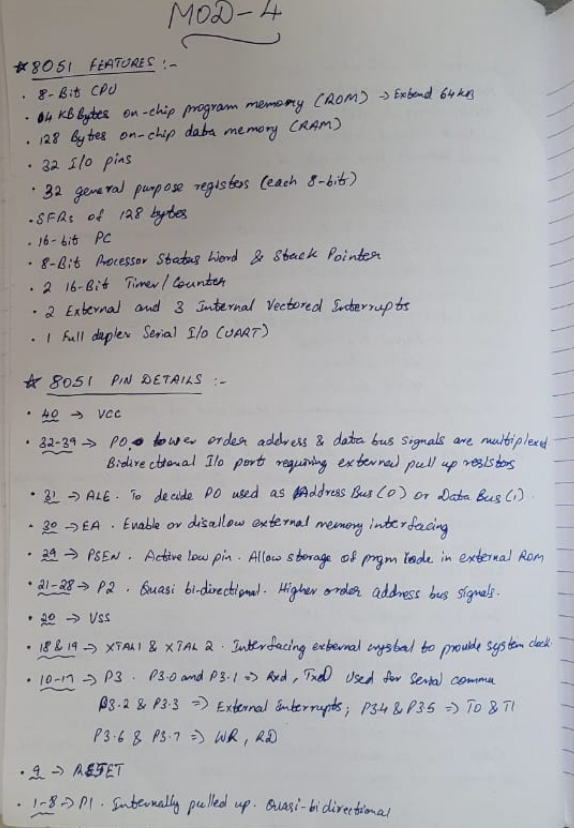 MOD-4
☆ 8051 FEATURES :-
· 8-Bit CPU
· 04 KB Bytes on-chip program memory (ROM) → Extend 64 KB
· 128 Bytes on-chip data memory (RAM)
· 32 I/O pins
· 32 general purpose registers (each 8-bit)
· SFRs of 128 bytes
· 16-bit PC
· 8-Bit Processor Status Word & Stack Pointer
· 2 16-Bit Timer/Counter
· 2 External and 3 Internal Vectored Interrupts
· 1 Full duplex Serial I/O (UART)
☆ 8051 PIN DETAILS :-
· 40 → VCC
· 32-39 → P0. Lower order address & data bus signals are multiplexed
Bidirectional I/o port requiring external pull up resistors
· 31 → ALE. To decide P0 used as Address Bus (0) or Data Bus (1).
· 30 → EA. Enable or disallow external memory interfacing
· 29 → PSEN. Active low pin. Allow storage of prgm code in external ROM
· 21-28 → P2. Quasi bi-directional. Higher order address bus signals.
· 20 → VSS
· 18 & 19 → XTAL1 & XTAL 2. Interfacing external crystal to provide system clock.
· 10-17 → P3. P3.0 and P3.1 => Rxd, TxD Used for Serial commu
P3.2 & P3.3 => External Interrupts; P3.4 & P3.5 => T0 & T1
P3.6 & P3.7 => WR, RD
· 9 → RESET
· 1-8 → P1. Internally pulled up. Quasi-bidirectional